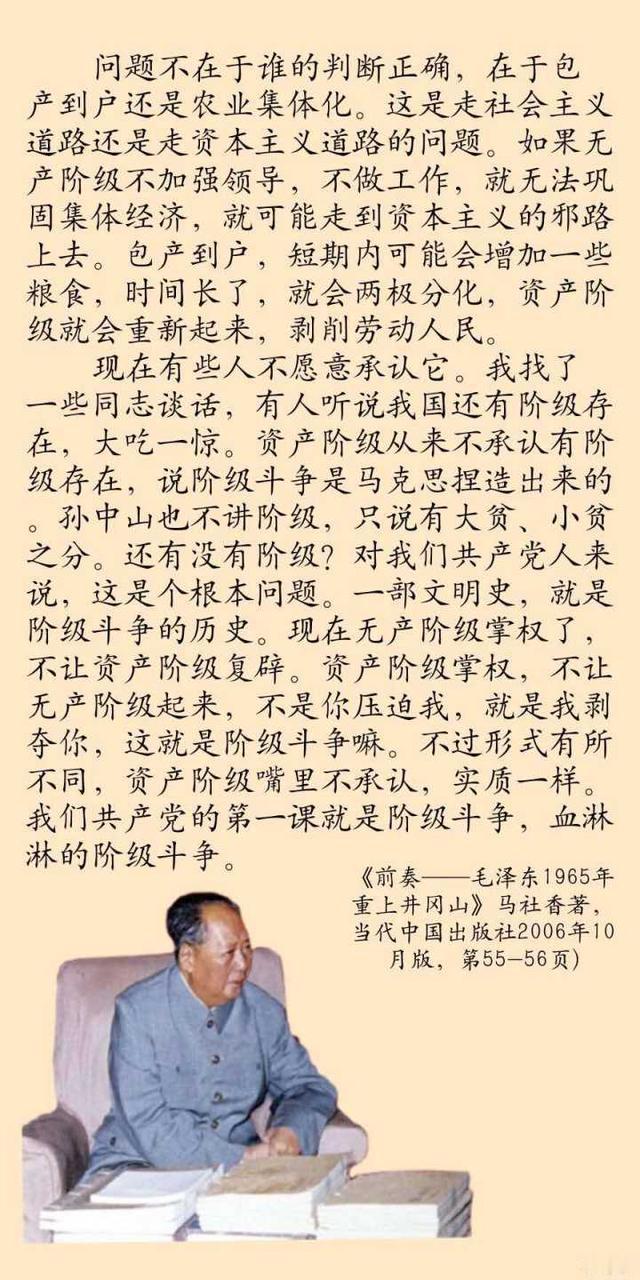 问题不在于谁的判断正确，在于包
产到户还是农业集体化。这是走社会主义
道路还是走资本主义道路的问题。如果无
产阶级不加强领导，不做工作，就无法巩
固集体经济，就可能走到资本主义的邪路
上去。包产到户，短期内可能会增加一些
粮食，时间长了，就会两极分化，资产阶
级就会重新起来，剥削劳动人民。
现在有些人不愿意承认它。我找了
一些同志谈话，有人听说我国还有阶级存
在，大吃一惊。资产阶级从来不承认有阶
级存在，说阶级斗争是马克思捏造出来的
。孙中山也不讲阶级，只说有大贫、小贫
之分。还有没有阶级？对我们共产党人来
说，这是个根本问题。一部文明史，就是
阶级斗争的历史。现在无产阶级掌权了，
不让资产阶级复辟。资产阶级掌权，不让
无产阶级起来，不是你压迫我，就是我剥
夺你，这就是阶级斗争嘛。不过形式有所
不同，资产阶级嘴里不承认，实质一样。
我们共产党的第一课就是阶级斗争，血淋
淋的阶级斗争。
《前奏——毛泽东1965年
重上井冈山》马社香著，
当代中国出版社2006年10
月版，第55—56页）